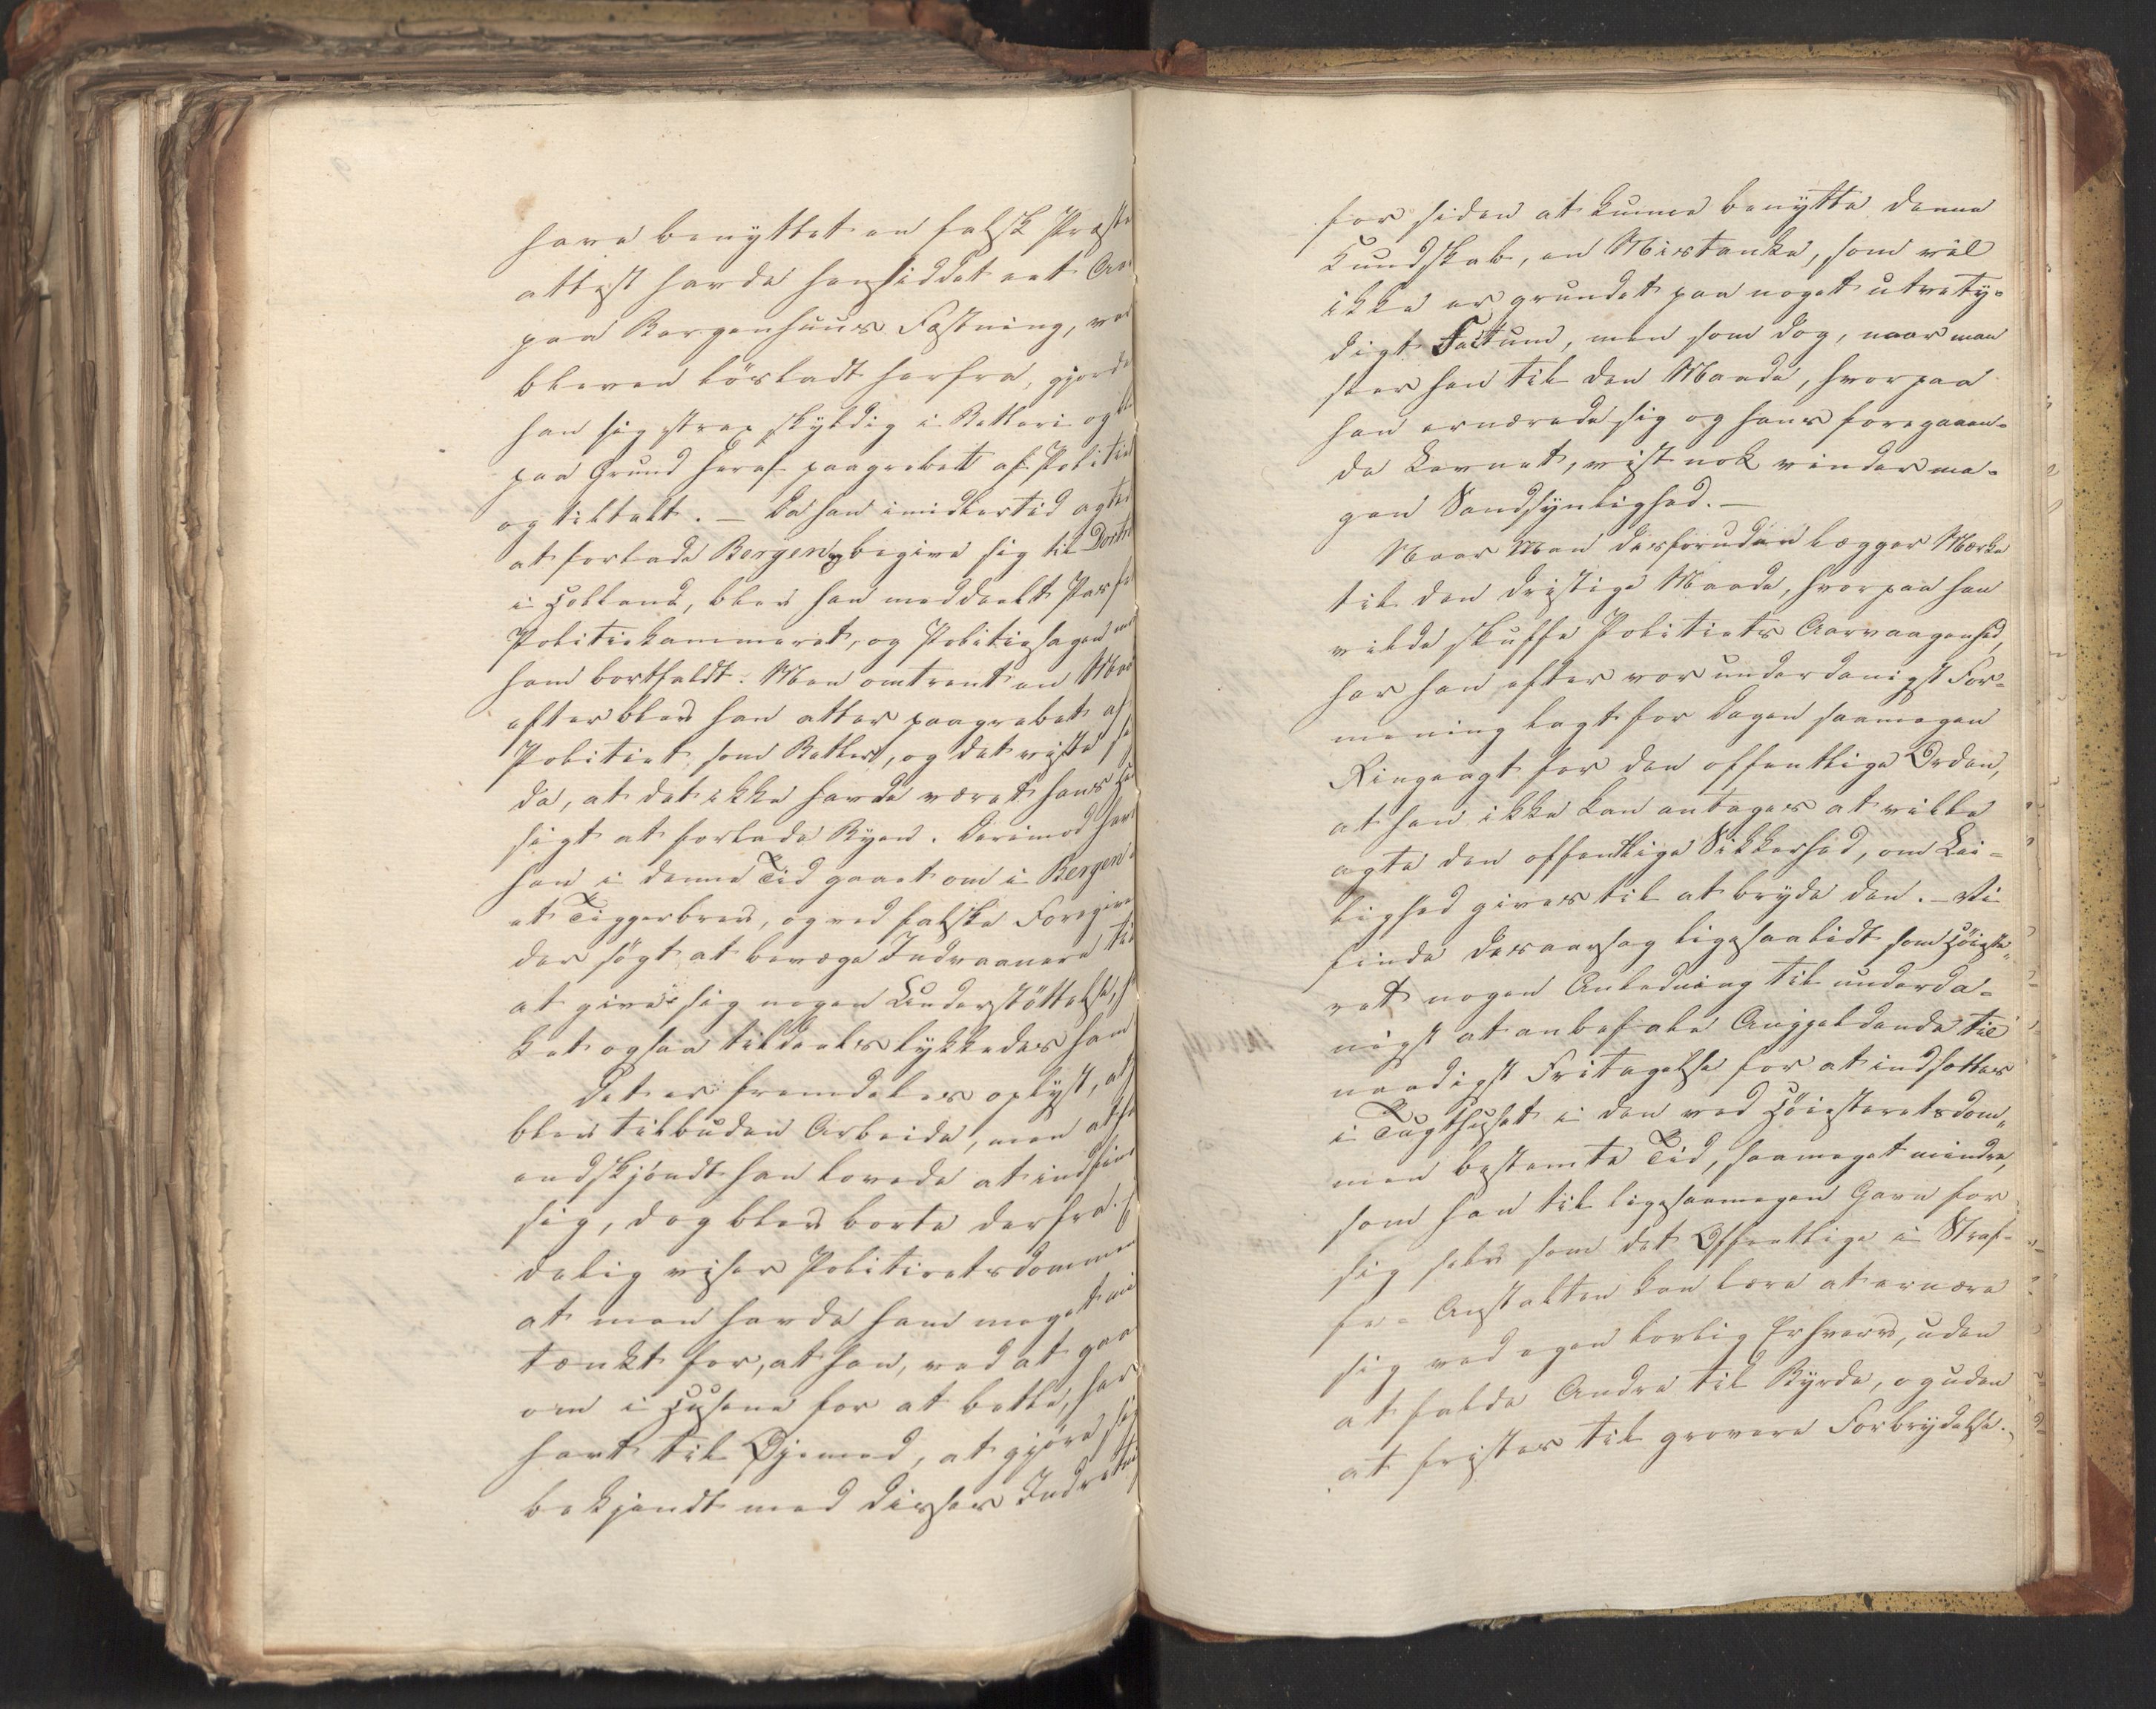 have benyttet en falsk Præste
attest havde hensiddet eet Aar
paa Bergenhuus Fæstning, var
bleven løsladt herfra, gjorde
han sig strax skyldig i Betleri og bl
paa Grund heraf paagrebet af Politiet
og tiltalt. – Da han imidlertid agted
at forlade Bergen og begive sig til Dortre
i Holland, blev han meddeelt Pas fra
Politiekammeret, og Politiesagen mod
ham bortfaldt. Men omtrent en Maa
efter blev han atter paagrebet af
Politiet som Betler, og det viste sig
da, at det ikke havde været hans Hen
sigt at forlade Byen. Derimod havde
han i denne Tid gaaet om i Bergen m
et Tiggerbrev, og ved falske Foregiven
der søgt at bevæge Indvaanere til
at give sig nogen Understøttelse, hvil
ket ogsaa tildeels lykkedes ham
Det er fremdeles oplyst, at h
blev tilbuden Arbeide, men at ha
endskjøndt han lovede at indfinde
sig, dog blev borte derfra. En
delig viser Politieretsdommen
at man havde ham meget mis
tænkt for, at han, ved at gaae
om i Husene for at betle, hav
havt til Øjemed, at gjøre sig
bekjendt med disses Indretning
for siden at kunne benytte denne
Kundskab, en Mistanke, som vel
ikke er grundet paa noget utvety-
digt Factum, men som dog, naar man
seer hen til den Maade, hvorpaa
han ernærede sig og hans foregaaen-
de Levnet, vist nok vinder me-
gen Sandsynlighed. –
Naar Man desforuden lægger Mærke
til den dristige Maade, hvorpaa han
vilde skuffe Politiets Aarvaagenhed,
har han efter vor underdanigst For-
mening lagt for Dagen saamegen
Ringeagt for den offentlige Orden,
at han ikke kan antages at ville
agte den offentlige Sikkerhed, om Lei-
lighed gives til at bryde den. – Vi
finde desaarsag ligesaalidt som Høieste-
ret nogen Anledning til underda-
nigst at anbefale Angjeldende til
naadigst Fritagelse for at indsættes
i Tugthuset i den ved Høiesteretsdom-
men bestemte Tid, saameget mindre,
som han til ligesaamegen Gavn for
sig selv som det Offentlige i Straf-
fe-Anstalten kan lære at ernære
sig ved egen lovlig Erhverv, uden
at falde Andre til Byrde, og uden
at fristes til grovere Forbrydelse.